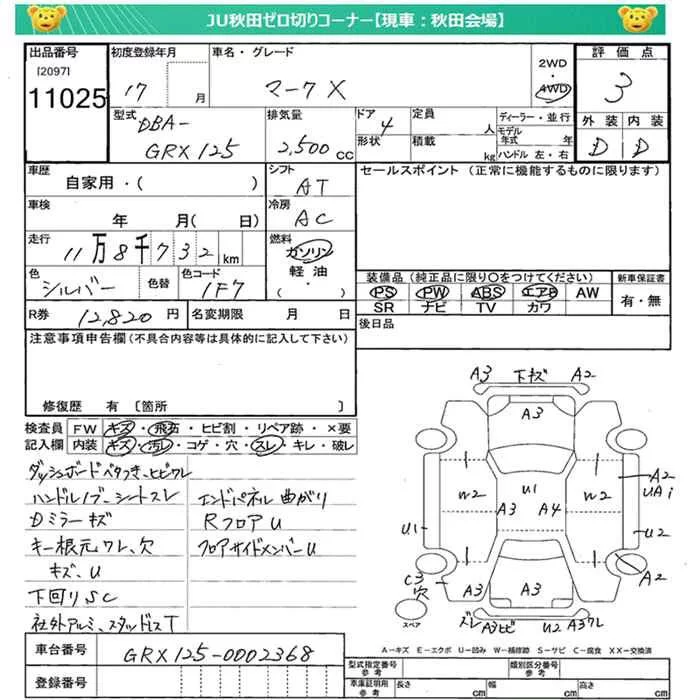 JU秋田ゼロ切りコーナー【現車：秋田会場】
出品番号
[2097]
11025
初度登録年月
17 月
車名・グレード
マークX
2WD
・
4WD
評価点
3
外装 内装
D D
型式
DBA-
GRX125
排気量
2,500 cc
ドア
4
形状
定員
人
積載
kg
ディーラー・並行
モデル年式 年
ハンドル 左・右
車歴
自家用・( )
シフト
AT
車検
年 月( 日)
冷房
AC
走行
11万8千732 km
燃料
ガソリン
軽油・
( )
色
シルバー
色替
色コード
1F7
R券 12,820 円
名変期限 月 日
セールスポイント（正常に機能するものに限ります）
装備品（純正品に限り〇をつけてください）
PS PW ABS エアB AW
SR ナビ TV カワ
新車保証書
有・無
後日品
注意事項申告欄（不具合内容等は具体的に記入して下さい）
修復歴 有 〔箇所 〕
検査員記入欄
FW キズ・飛石・ヒビ割・リペア跡・×要
内装 キズ・汚レ・コゲ・穴・スレ・キレ・破レ
ダッシュボードベタつき、ヒビワレ
ハンドルノブ、シートスレ
Dミラーキズ
キー根元ワレ、穴
キズ、U
下回りSC
社外アルミ、スタッドレスT
エンドパネル曲がり
RフロアU
フロアサイドメンバーU
A3 下キズ A2
A3
W2 A3 U1 A4 W2
A2
UAi
U1
U2
C3
穴
A3 A3 A3
A2
スペア
ズレ A3ヒビ U2 A3ワレ
A－キズ E－エクボ U－凹み W－補修跡 S－サビ C－腐食 XX－交換済
車台番号
GRX125-0002368
登録番号
型式指定番号
参考
類別区分番号
参考
車庫証明用
参考
長さ cm
幅 cm
高さ cm